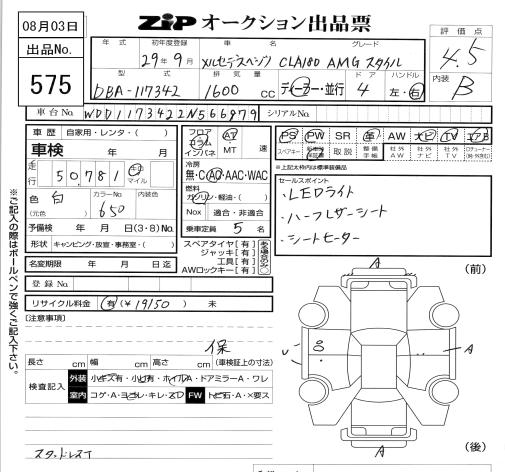 08月03日
ZIP オークション出品票
出品No.
575
評価点
4.5
内装
B
年式 初年度登録 車名 グレード
29年9月 メルセデスベンツ CLA180 AMGスタイル
型式 排気量 ドア ハンドル
DBA-117342 1600 cc ディーラー・並行 4 左・右
車台No. WDD1173422N566979 シリアルNo.
車歴 自家用・レンタ・( )
車検 年 月
走行 50,781 キロ マイル
色 白 (元色) カラーNo 650 内装色
予備検 年 月 日(3・8)No.
形状 キャンピング・放宣・事務室・( )
名変期限 年 月 日迄
登録No.
リサイクル料金 有(¥ 19150 ) 未
フロア コラム インパネ
AT MT 速
冷房
無・C・AC・AAC・WAC
燃料
ガソリン・軽油・( )
Nox 適合・非適合
乗車定員 5 名
スペアタイヤ[有]
ジャッキ[有]
工具[有]
AWロックキー[有]
有る場合のみ○
PS PW SR 革 AW ナビ TV エアB
スペアキー 取説 整備手帳 社外AW 社外ナビ 社外TV
※上記太枠内は標準装備品
セールスポイント
・LEDライト
・ハーフレザーシート
・シートヒーター
※ご記入の際はボールペンで強くご記入下さい。
[注意事項]
保
長さ cm 幅 cm 高さ cm (車検証上の寸法)
検査記入
外装 小キズ有・小凹有・ホイルA・ドアミラーA・ワレ
室内 コゲ・A・ヨゴレ・キレ・スレ FW トビ石・A・×要ス
スタッドレス
(前)
A
A
A
(後)